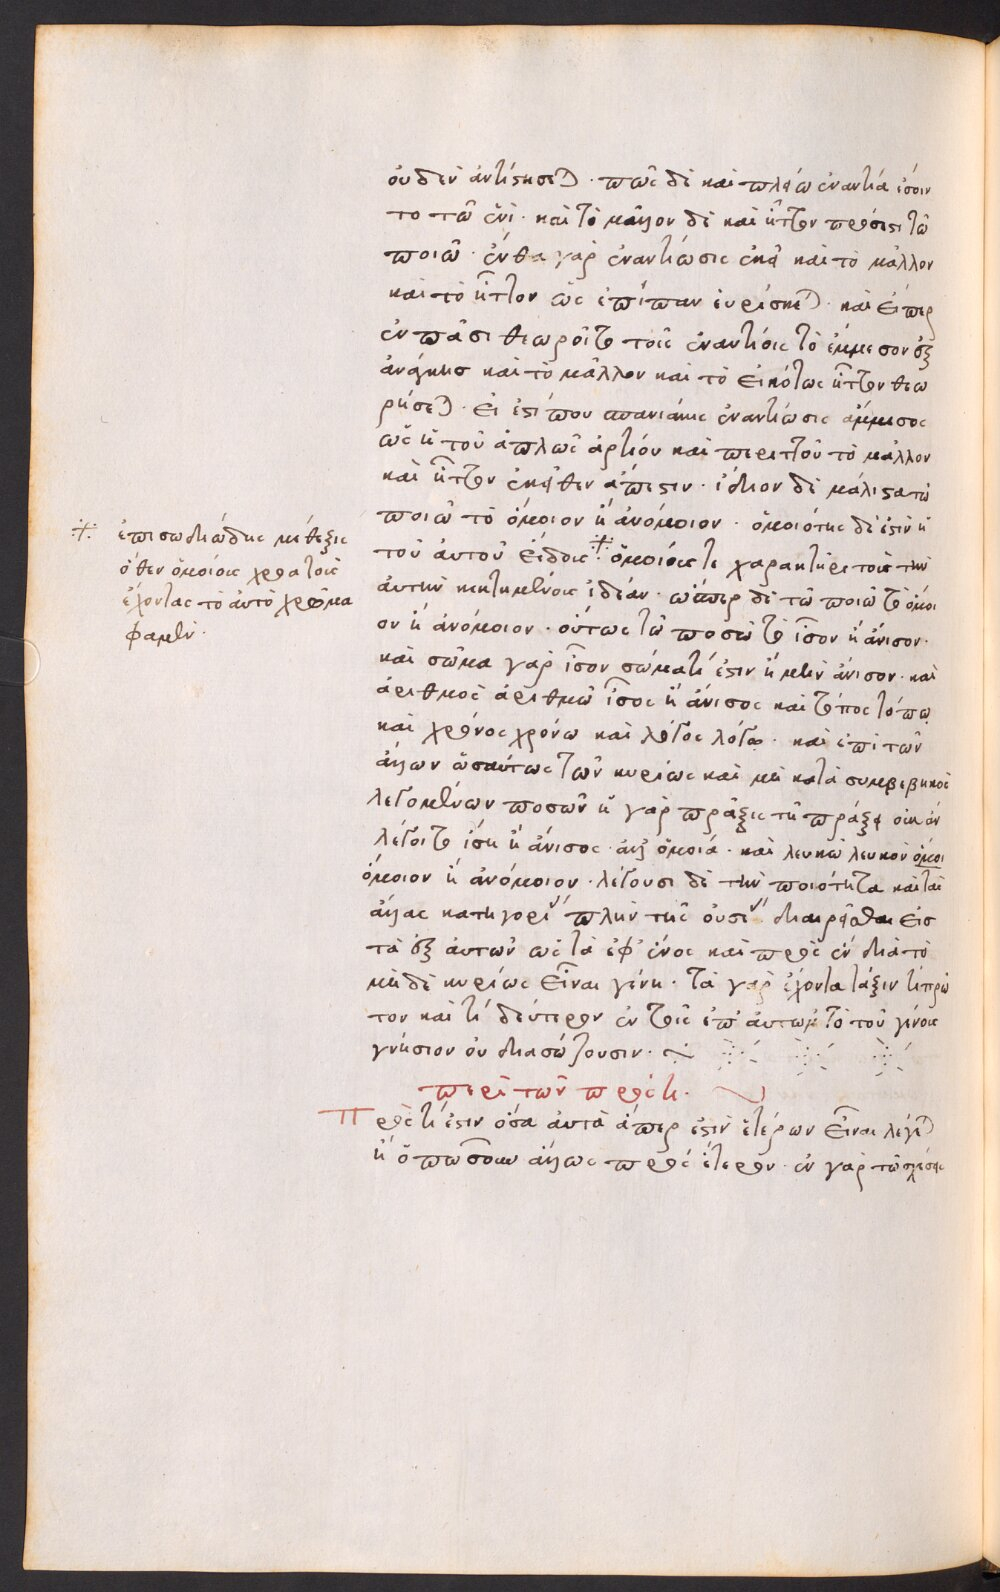 οὐδὲν ἀντίκησε). πῶς δὲ καὶ πλείω ἐναντία ἔσοιν
το τῶ ἑνί. καὶ τὸ μᾶλλον δὲ καὶ ἧττον πρόσεστι τῶ
ποιῶ. ἔνθα γὰρ ἐναντίωσις ἐκεῖ καὶ τὸ μᾶλλον
καὶ τὸ ἧττον ὡς ἐπίπαν εὑρίσκε). καὶ εἴπερ
ἐν πᾶσι θεωροῖτο τοῖς ἐναντίοις τὸ ἔμμεσον ἐξ
ἀνάγκησ καὶ τὸ μᾶλλον καὶ τὸ εἰκότως ἧττον θεω
ρήσε). εἰ ἔστί που σπανιάκις ἐναντίωσις ἄμμεσος
ὡς ἡ τοῦ ἁπλῶς ἀρτίου καὶ περιττοῦ τὸ μᾶλλον
καὶ ἧττον ἐκεῖθεν ἄπεστιν. ἴδιον δὲ μάλιστα τῶ
ποιῶ τὸ ὅμοιον ἢ ἀνόμοιον. ὁμοιότης δέ ἐστιν ἡ
τοῦ αὐτοῦ εἴδους ὁμοίους τε χαρακτήρε τοὺς τὴν
αὐτὴν κεκτημένους ἰδέαν. ὥσπερ δὲ τῶ ποιῶ τὸ ὅμοι
ον ἢ ἀνόμοιον. οὕτως τῶ ποσῶ τὸ ἴσον ἢ ἄνισον.
καὶ σῶμα γὰρ ἴσον σώματί ἐστιν ἢ μὴν ἄνισον. καὶ
ἀριθμὸς ἀριθμῶ ἴσος ἢ ἄνισος καὶ τόπος τόπω
καὶ χρόνος χρόνω καὶ λόγος λόγω. καὶ ἐπὶ τῶν
ἄλλων ὡσαύτως τῶν κυρίως καὶ μὴ κατὰ συμβεβηκὸς
λεγομένων ποσῶν ἡ γὰρ πρᾶξις τῆ πράξει οὐκ ἂν
λέγοιτο ἴση ἢ ἄνισος. ἀλλ' ὁμοία. καὶ λευκῶ λευκὸν ὅμοι
ὅμοιον ἢ ἀνόμοιον. λέγουσι δὲ τὴν ποιότητα καὶ τὰς
ἄλλας κατηγορί'' πλὴν τῆς οὐσί'' διαιρεῖσθαι εἰσ
τὰ ἐξ αὐτῶν ὡς τὰ ἐφ' ἑνὸς καὶ πρὸς ἓν διὰ τὸ
μηδὲ κυρίως εἶναι γένη. τὰ γὰρ ἔχοντα τάξιν τί πρῶ
τον καὶ τί δεύτερον ἐν τοῖς ὑπ' αὐτῶν τὸ τοῦ γένους
γνήσιον οὐ διασώζουσιν.
περὶ τῶν πρός τι.
Πρός τί ἐστιν ὅσα αὐτὰ ἅπερ ἐστὶν ἑτέρων εἶναι λέγε)
ἢ ὁπωσοῦν ἄλλως πρὸς ἕτερον. ἐν γὰρ τῶ σχέσεις
ἐπισωδιώδης μέθεξις
ὅθεν ὁμοίους χρῶ τοὺς
ἔχοντας τὸ αὐτὸ χρῶμα
φαμὲν.